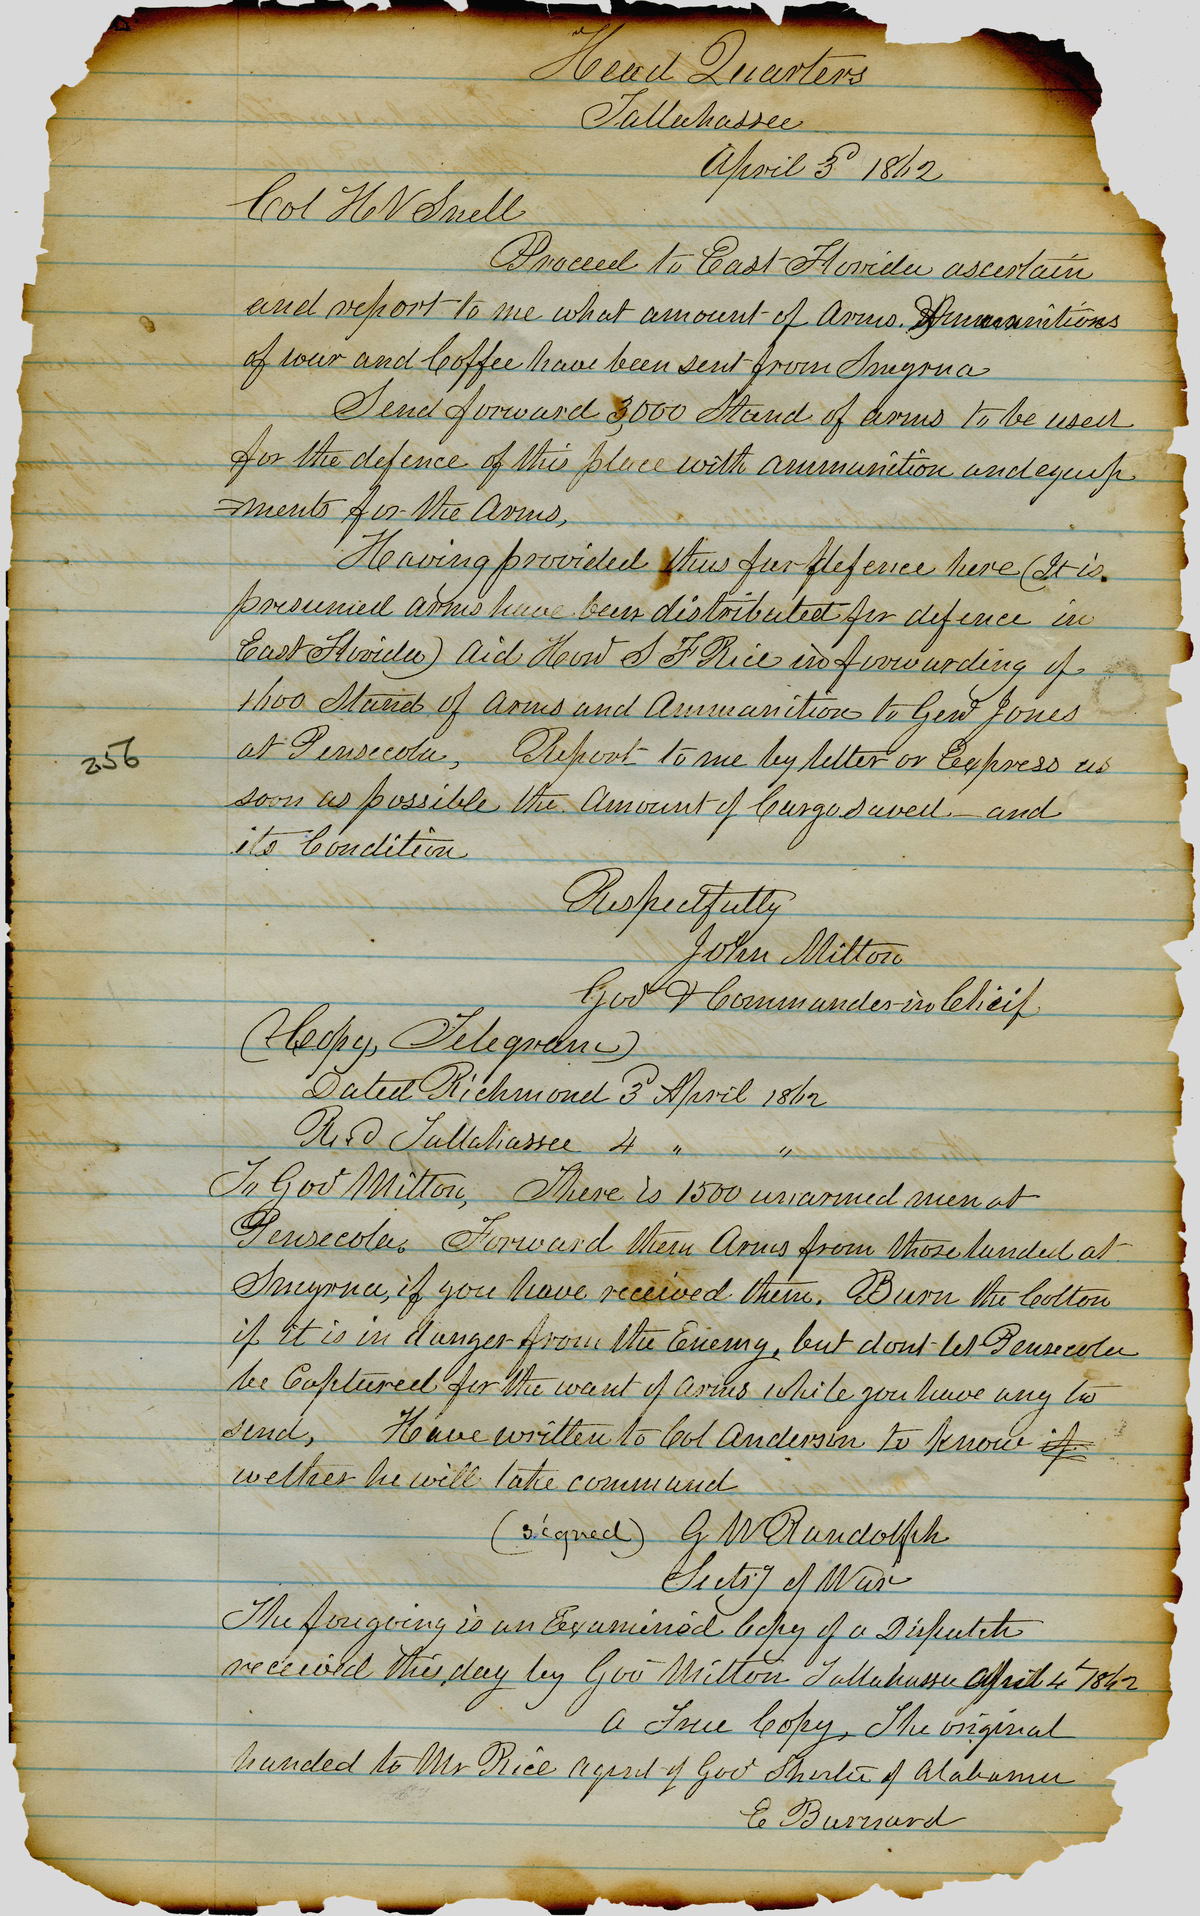 Head Quarters
Tallahassee
April 3d 1862
Col H V Snell
Proceed to East Florida ascertain
and report to me what amount of Arms. Ammunitions
of war and Coffee have been sent from Smyrna
Send forward 3,000 Stand of arms to be used
for the defence of this place with ammunition and equip
=ments for the Arms,
Having provided thus for defence here (It is
presumed arms have been distributed for defence in
East Florida) Aid Hon S F Rice in forwarding of
1600 Stand of Arms and Ammunition to Genl Jones
at Pensecola, Report to me by letter or Express as
soon as possible the Amount of Cargo saved - and
its Condition
Respectfully
John Milton
Gov & Commander in Chief
(Copy, Telegram)
Dated Richmond 3d April 1862
Recd Tallahassee 4 " "
To Gov Milton, There is 1500 unarmed men at
Pensecola. Forward them Arms from those landed at
Smyrna, if you have received them. Burn the Cotton
if it is in danger from the Enemy, but dont let Pensecola
be Captured for the want of arms while you have any to
send, Have written to Col Anderson to know if
wether he will take command
(signed) G W Randolph
Secty of War
The foregoing is an Examined Copy of a Dispatch
received this day by Gov Milton Tallahassee April 4th 1862
A True Copy, The original
handed to Mr Rice Agent of Gov Shorter of Alabama
E Barnard
256